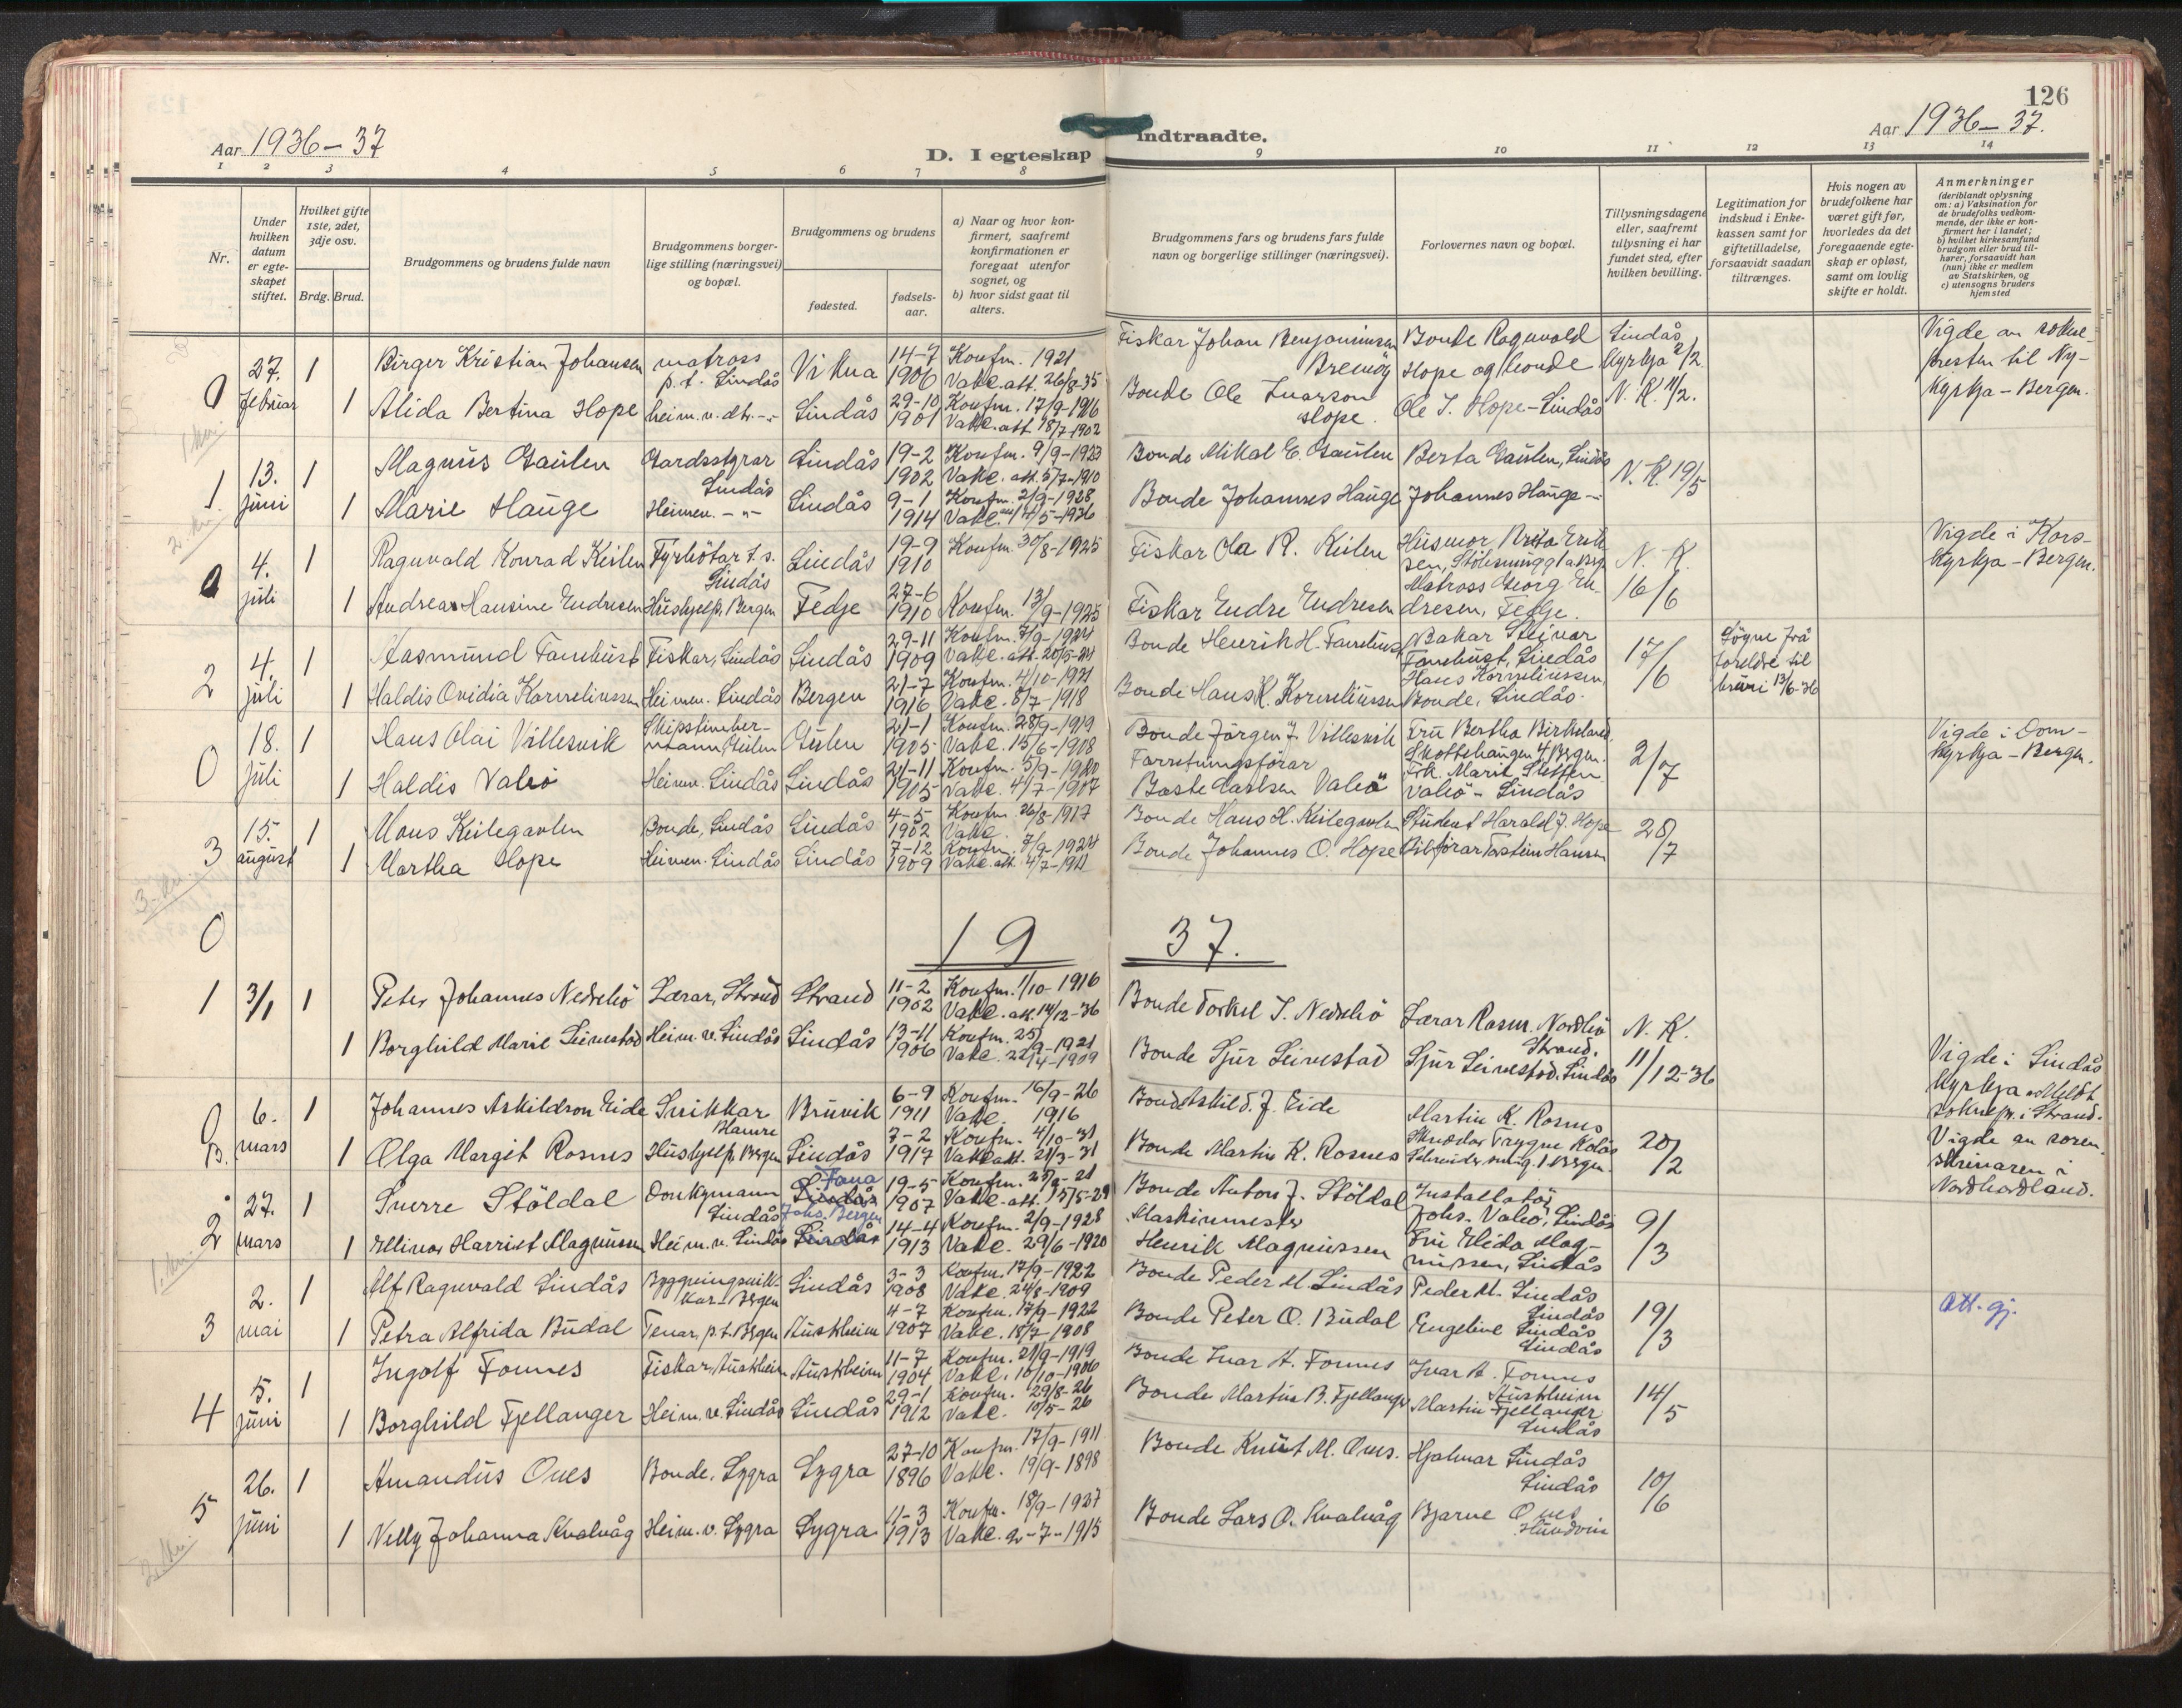 126
Aar 1936-37
D. I egteskap indtraadte.
Aar 1936-37.
1 2 3 4 5 6 7 8 9 10 11 12 13 14
Nr.
Under hvilken datum er egteskapet stiftet.
Hvilket gifte 1ste, 2det, 3dje osv.
Brdg. Brud.
Brudgommens og brudens fulde navn
Brudgommens borgerlige stilling (næringsvei) og bopæl.
Brudgommens og brudens
fødested.
fødselsaar.
a) Naar og hvor konfirmert, saafremt konfirmationen er foregaat utenfor sognet, og
b) hvor sidst gaat til alters.
Brudgommens fars og brudens fars fulde navn og borgerlige stillinger (næringsvei).
Forlovernes navn og bopæl.
Tillysningsdagene eller, saafremt tillysning ei har fundet sted, efter hvilken bevilling.
Legitimation for indskud i Enkekassen samt for giftetilladelse, forsaavidt saadan tiltrænges.
Hvis nogen av brudefolkene har været gift før, hvorledes da det foregaaende egteskap er opløst, samt om lovlig skifte er holdt.
Anmerkninger
(deriblandt oplysning om: a) Vaksination for de brudefolks vedkommende, der ikke er konfirmert her i landet;
b) hvilket kirkesamfund brudgom eller brud tilhører, forsaavidt han (hun) ikke er medlem av Statskirken, og
c) utensogns bruders hjemsted
0 27. februar 1 Birger Kristian Johansen matross p.t. Lindås Vikna 14-7 1906 Konfm. 1921 Vakc. att. 26/8-35 Fiskar Johan Benjaminsen Bremöy Bonde Ragnvald Hope og bonde Lindås kyrkja 2/2 Vigde av soknepresten til Nykyrkja-Bergen.
1 Alida Bertina Hope heim. v. dtr. -"- Lindås 29-10 1901 Konfm. 17/9-1916 Vakc. att. 18/7-1902 Bonde Ole Ivarson Hope. Ole I. Hope-Lindås N. K. 11/2.
1. 13. juni 1 Magnus Gaulen Gardsstyrar Lindås Lindås 19-2 1902 Konfm. 9/9-1923 Vakc. att. 5/7-1910 Bonde Mikal E. Gaulen Berta Gaulen, Lindås N. K. 19/5
1 Marie Hauge Heimev. -"- Lindås 9-1 1914 Konfm. 2/9-1928 Vakc. att. 14/5-1936 Bonde Johannes Hauge Johannes Hauge -"-
0 4. juli 1 Ragnvald Konrad Keilen Fyrbötar t.s. Lindås Lindås 19-9 1910 Konfm. 30/8-1925 Fiskar Ola R. Keilen Husmor Brita Eriksen, N. K. 16/6 Vigde i Korskyrkja-Bergen.
1 Andrea Hansine Endresen Hushjelp, Bergen Fedje 27-6 1910 Konfm. 13/9-1925 Fiskar Endre Endresen Matross Georg Endresen, Fedje.
2 4. juli 1 Aasmund Fanebust Fiskar, Lindås Lindås 29-11 1909 Konfm. 7/9-1924 Vakc. att. Bonde Henrik H. Fanebust Bakar Steinar Fanebust, Lindås 17/6 Løyve frå foreldre til bruri 13/6-36
1 Haldis Ovidia Korneliussen Heimev. Lindås Bergen 21-7 1916 Konfm. 4/10-1931 Vakc. 8/7-1918 Bonde Hans K. Korneliussen Hans Korneliussen, Bonde, Lindås.
0 18. juli 1 Hans Olai Villesvik Skipstimbermann Gulen Gulen 21-1 1905 Konfm. 28/9-1919 Vakc. 15/6-1908 Bonde Jörgen J. Villesvik Fru Bertha Birkeland, Bergen. 2/7 Vigde i Domkyrkja-Bergen.
1 Haldis Valeö Heimev. Lindås Lindås 21-11 1905 Konfm. 5/9-1920 Vakc. 4/7-1907 Forretningsförar Baste Carlsen Valeö Frk. Marit Steffen Valeö-Lindås
3 15. august 1 Mons Keilegavlen Bonde, Lindås Lindås 4-5 1902 Konfm. 26/8-1917 Vakc. Bonde Hans H. Keilegavlen Student Harald J. Hope 28/7
1 Martha Hope Heimev. Lindås Lindås 7-12 1909 Konfm. 7/9-1924 Vakc. att. 4/7-1911 Bonde Johannes O. Hope Bilförar Torstein Hansen
0
1937.
1 3/1 1 Peter Johannes Nedrebö Lærar, Strand Strand 11-2 1902 Konfm. 1/10-1916 Vakc. att. 14/12-36 Bonde Torkel T. Nedrebö Lærar Rasm. Nordbö Strand. N. K. 11/12-36
1 Borghild Marie Leirestad Heim. v. Lindås Lindås 13-11 1906 Konfm. 25/9-1921 Vakc. 22/4-1909 Bonde Sjur Leivestad Sjur Leivestad, Lindås Vigde i Lindås kyrkja Meldt soknepr. i Strand.
6. mars 1 Johannes Askildson Eide Snikkar Hamre Bruvik 6-9 1911 Konfm. 16/9-26 Vakc. 1916 Bonde Askild J. Eide Martin K. Rosnes 20/2 Vigde av sorenskrivaren i Nordhordland.
1 Olga Margit Rosnes Hushjelp, Bergen Lindås 7-2 1917 Konfm. 4/10-31 Vakc. att. 21/3-31 Bonde Martin K. Rosnes Skreddar Trygve Kolås Bergen.
2 27. mars 1 Sverre Stöldal Donkymann Lindås Lindås Fana 19-5 1907 Konfm. 25/9-21 Vakc. att. 15/5-29 Bonde Anton J. Stöldal Installatör Johs. Valeö, Lindås 9/3
1 Ellinor Harriet Magnussen Heim. v. Lindås Lindås Johs. Bergen 14-4 1913 Konfm. 2/9-1928 Vakc. 29/6-1920 Maskinmester Henrik Magnussen Fru Elida Magnussen, Lindås
3 2. mai 1 Alf Ragnvald Lindås Bygningsnikkar-Bergen Lindås 3-3 1908 Konfm. 17/9-1922 Vakc. 24/8-1909 Bonde Peder M. Lindås Peder M. Lindås Lindås 19/3 att. gj.
1 Petra Alfrida Budal Tenar, p.t. Bergen Austrheim 4-7 1907 Konfm. 17/9-1922 Vakc. 18/7-1908 Bonde Peter O. Budal Engeline Lindås Lindås
4 5. juni 1 Ingolf Fonnes Fiskar, Austrheim Austrheim 11-7 1904 Konfm. 21/9-1919 Vakc. 10/10-1906 Bonde Ivar A. Fonnes Ivar A. Fonnes Austrheim 14/5
1 Borghild Fjellanger Heim. v. Lindås Lindås 29-1 1912 Konfm. 29/8-26 Vakc. 10/5-26 Bonde Martin B. Fjellanger Martin Fjellanger Lindås
5 26. juni 1 Amandus Ones Bonde, Lygra Lygra 27-10 1896 Konfm. 17/9-1911 Vakc. 19/9-1898 Bonde Knut M. Ones. Hjalmar Lindås Lindås 10/6
1 Nelly Johanna Kvalvåg Heim. v. Lygra Lygra 11-3 1913 Konfm. 18/9-1927 Vakc. 2-7-1915 Bonde Lars O. Kvalvåg Bjarne Ones Hundvin